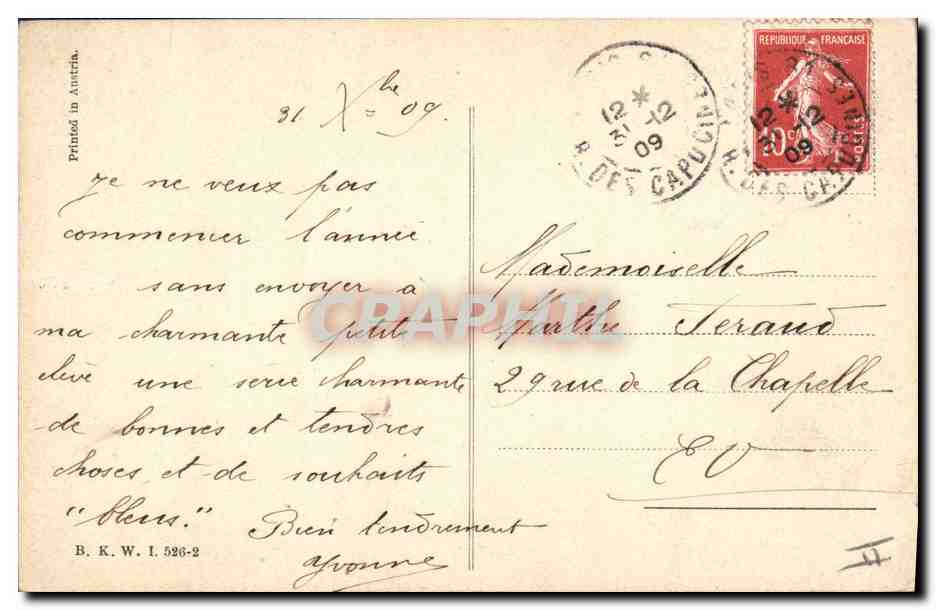 Printed in Austria.
31 Xbre 09.
Je ne veux pas
commencer l'année
sans envoyer à
ma charmante petite
élève une série charmante
de bonnes et tendres
choses, et de souhaits
"bleus."
Bien tendrement
Yvonne
B. K. W. I. 526-2
12 *
31-12
09
R. DES CAPUCINES
REPUBLIQUE FRANÇAISE
10c
POSTES
12 *
31-12
09
R. DES CAPUCINES
Mademoiselle
Marthe Feraud
29 rue de la Chapelle
EV
CRAPHIL